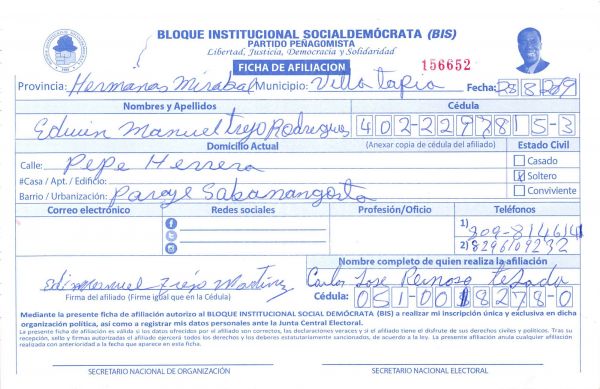 BLOQUE INSTITUCIONAL SOCIALDEMÓCRATA (BIS)
PARTIDO PEÑAGOMISTA
Libertad, Justicia, Democracia y Solidaridad
FICHA DE AFILIACION
156652
Provincia: Hermanas Mirabal Municipio: Villa tapia Fecha:
Nombres y Apellidos Cédula
Edwin Manuel trejo Rodrigues 402-2297815-3
Domicilio Actual (Anexar copia de cédula del afiliado) Estado Civil
Calle: Pepe Herrera
Casado
#Casa / Apt. / Edificio:
Soltero
Barrio / Urbanización: Paraje Sabanangosta
Conviviente
Correo electrónico Redes sociales Profesión/Oficio Teléfonos
1) 809-814614
2) 8296109232
Nombre completo de quien realiza la afiliación
Trejo Martinez Carlos Jose Reinoso tejada
Firma del afiliado (Firme igual que en la Cédula) Cédula: 051-0018278-0
Mediante la presente ficha de afiliación autorizo al BLOQUE INSTITUCIONAL SOCIAL DEMÓCRATA (BIS) a realizar mi inscripción única y exclusiva en dicha
organización política, así como a registrar mis datos personales ante la Junta Central Electoral.
La presente ficha de afiliación es válida si los datos ofrecidos por el afiliado son correctos, las declaraciones veraces y si el afiliado tiene el disfrute de sus derechos civiles y políticos. Tras su
recepción, sello y firmas autorizadas el afiliado ejercerá todos los derechos y los deberes estatutariamente sancionados, de acuerdo a la ley. La presente afiliación anula cualquier afiliación
realizada con anterioridad a la fecha que aparece en esta ficha.
SECRETARIO NACIONAL DE ORGANIZACIÓN SECRETARIO NACIONAL ELECTORAL